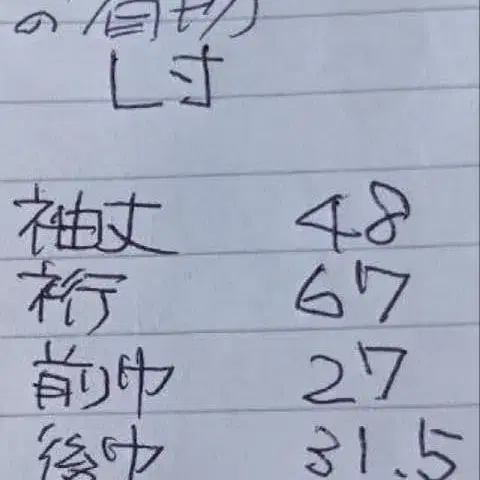 の
L寸
袖丈 48
裄 67
前巾 27
後巾 31.5